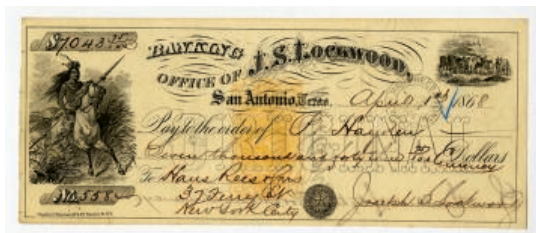 $7043 25/100
BANKING
OFFICE OF J.S. LOCKWOOD,
San Antonio, Texas. April 1st 1868
Pay to the order of P. Hayden
Seven thousand and forty three 25/100 Dollars
Currency
To Hans Rees & Sons
37 Ferry St
New York City
Joseph S. Lockwood
No. 558